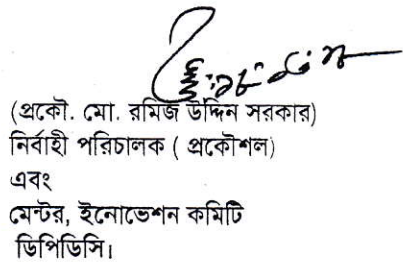 (প্রকৌ. মো. রমিজ উদ্দিন সরকার)
নির্বাহী পরিচালক ( প্রকৌশল)
এবং
মেন্টর, ইনোভেশন কমিটি
ডিপিডিসি।